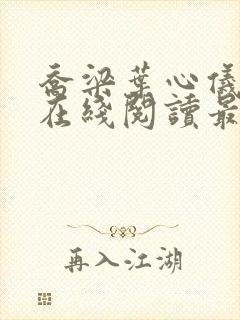 乔梁葉心儀
在綫閱讀最
再入江湖